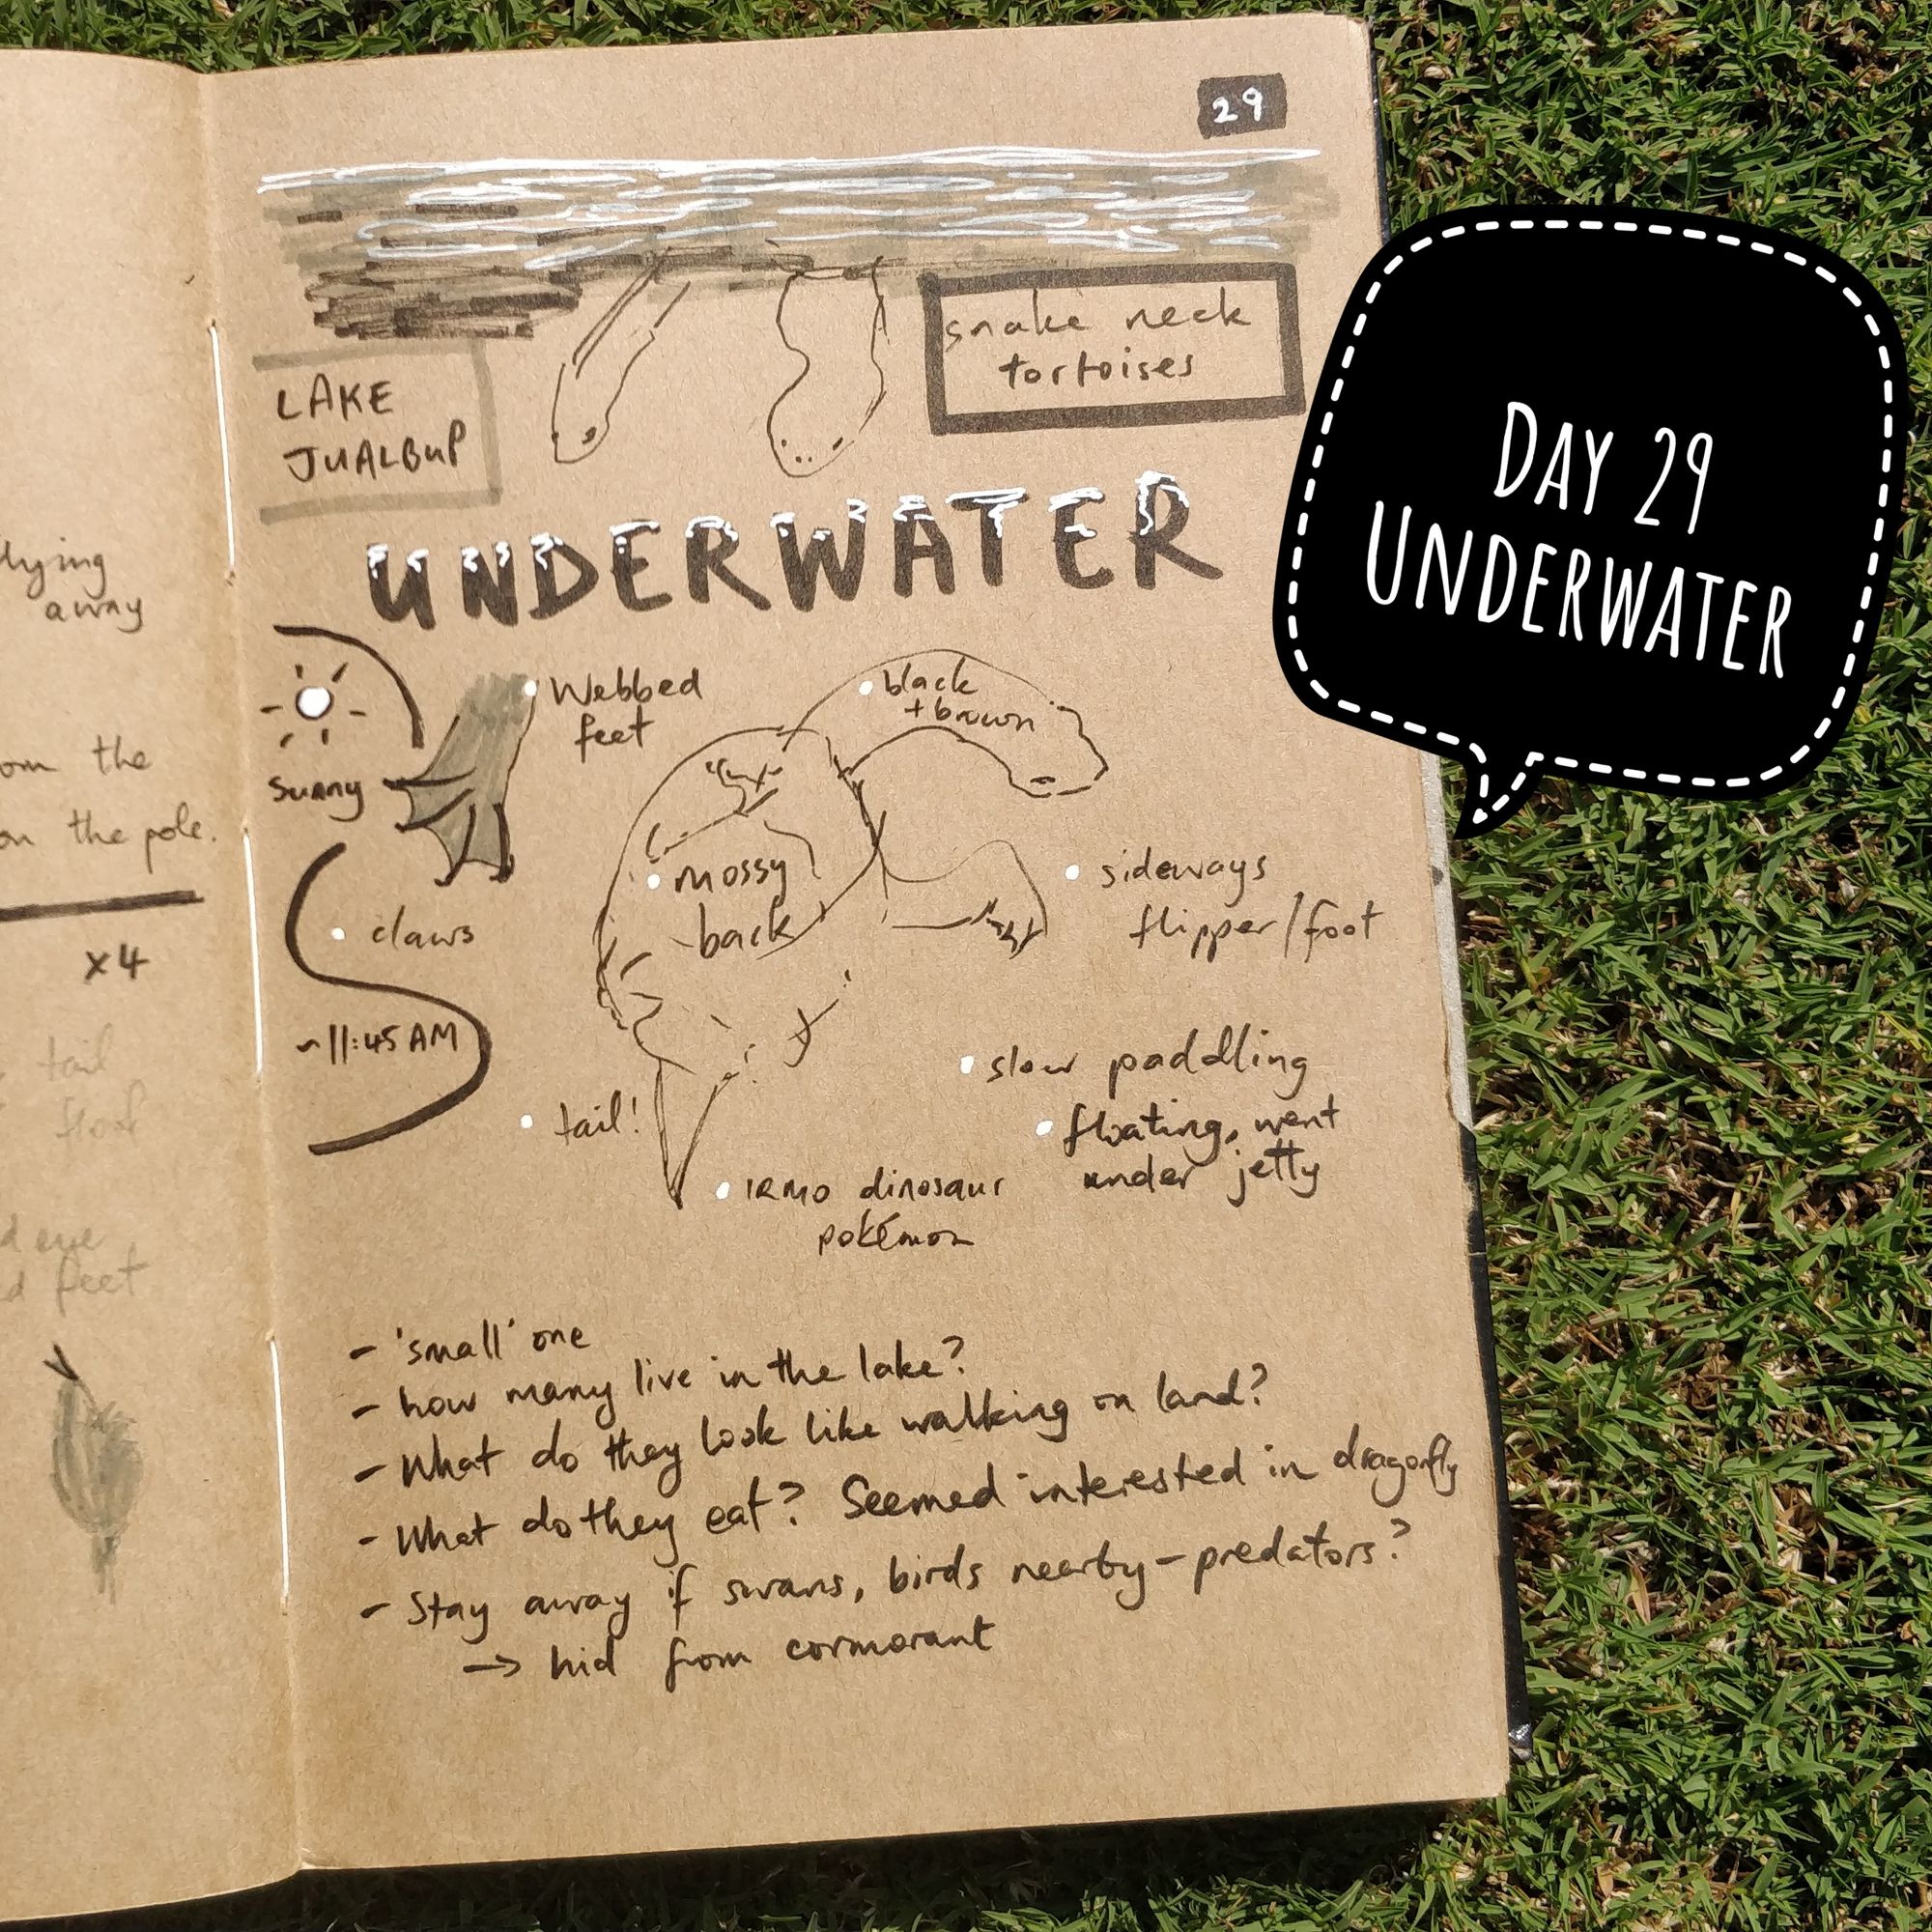 29
snake neck
tortoises
LAKE
JUALBUP
UNDERWATER
DAY 29
UNDERWATER
sunny
Webbed
feet
black
+ brown
mossy
back
sideways
flipper/foot
claws
~11:45 AM
tail!
slow paddling
floating, went
under jetty
IRMO dinosaur
pokémon
- 'small' one
- how many live in the lake?
- What do they look like walking on land?
- What do they eat? Seemed interested in dragonfly
- Stay away if swans, birds nearby - predators?
→ hid from cormorant
away
the
on the pole.
x4
tail
floof
feet